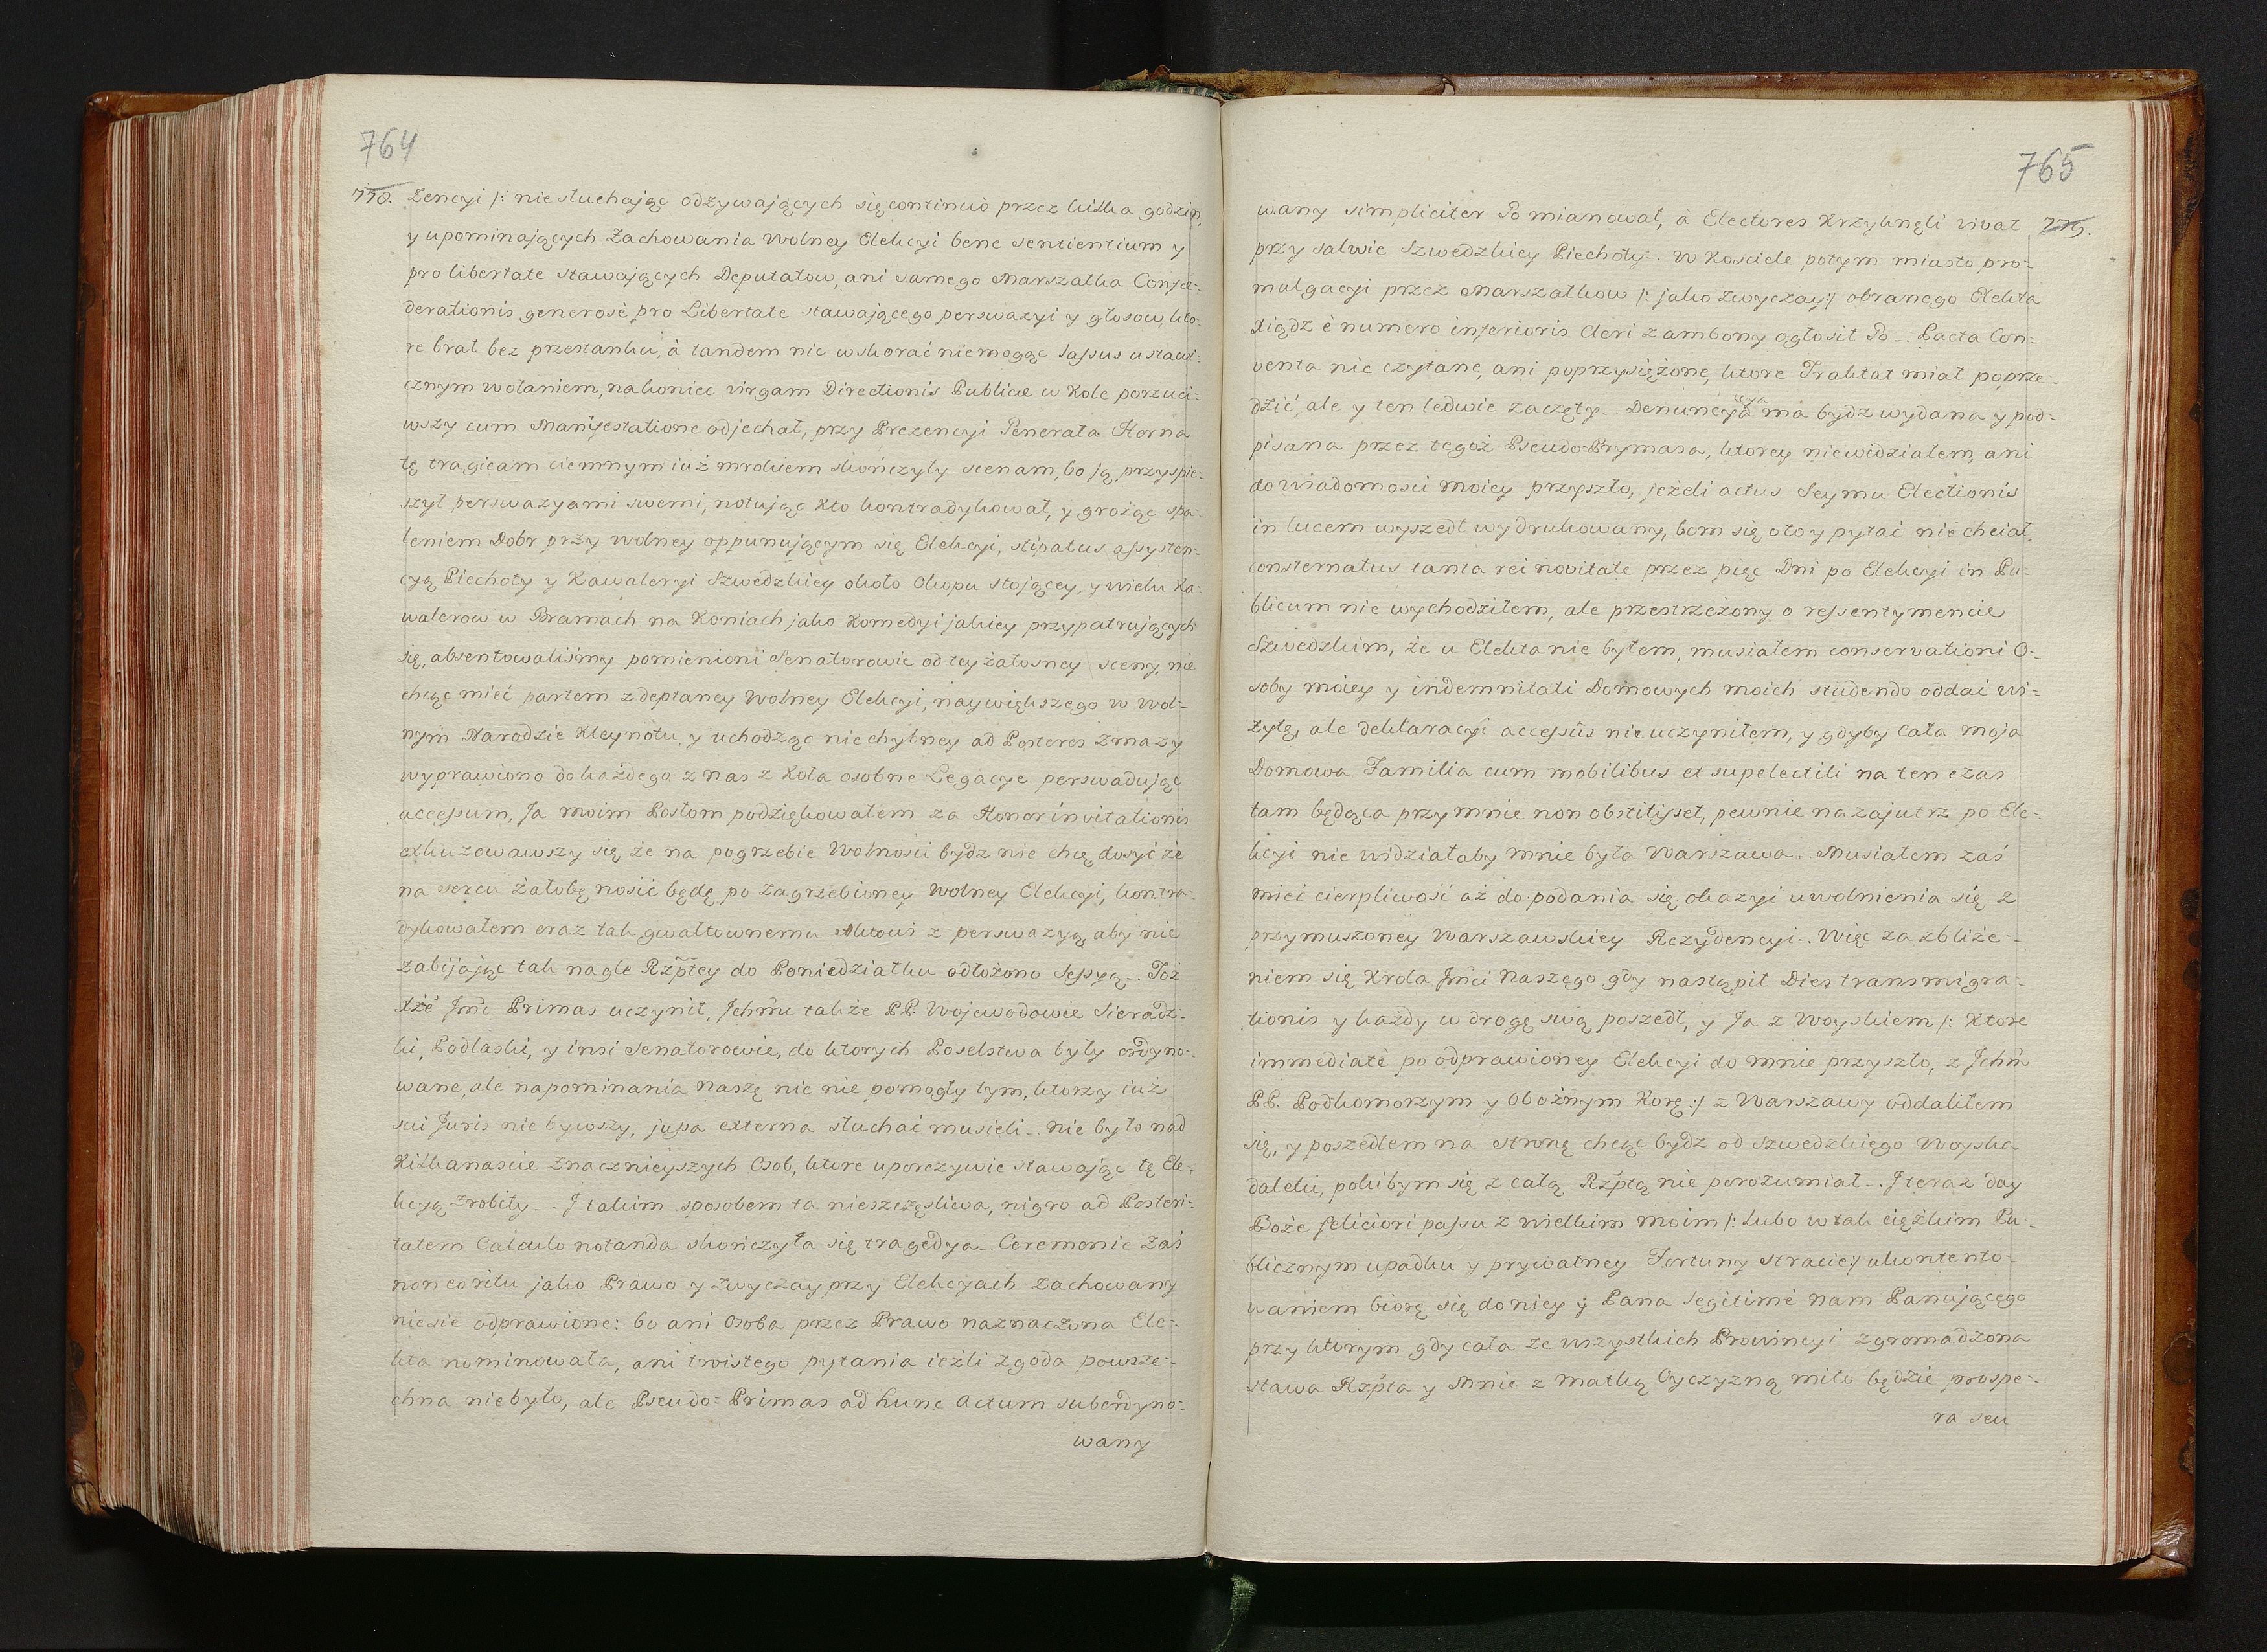 764
778. zencyi /: nie słuchając odzywających się continuò przez kilka godzin,
y upominających Zachowania Wolney Elekcyi bene sentientium y
pro libertate stawających Deputatow, ani samego Marszałka Confœ-
derationis generosè pro Libertate stawającego perswazyi y głosow, kto-
re brał bez przestanku, à tandem nic wskorać niemogąc lassus ustawi-
cznym wołaniem, nakoniec virgam Directionis Publicæ w Kole porzuci-
wszy cum Manifestatione odjechał, przy Prezencyi Generała Horna
tę tragicam ciemnym iuż mrokiem skończyły scenam, bo ją przyspie-
szył perswazyami swemi, notując kto kontradykował, y grożąc spa-
leniem Dobr przy wolney oppunującym się Elekcyi, stipatus assysten-
cyą Piechoty y Kawaleryi Szwedzkiey około Okopu stojącey, y wielu Ka-
walerow w Bramach na Koniach jako Komedyi jakiey przypatrujących
się, absentowaliśmy pomienioni Senatorowie od tey żałosney sceny, nie
chcąc mieć partem zdeptaney Wolney Elekcyi, naywiększego w Wol-
nym Narodzie Kleynotu, y uchodząc niechybney ad Posteros Zmazy
wyprawiono do każdego z nas z Koła osobne Legacye perswadując
accessum, Ja moim Posłom podziękowałem za Honor invitationis
exkuzowawszy się że na pogrzebie Wolności bydz nie chcę, dosyć że
na sercu żałobę nosić będę po Zagrzebioney Wolney Elekcyi, kontra-
dykowałem oraz tak gwałtownemu Aktowi z perswazyą, aby nie
zabijając tak nagle Rzptey do Poniedziałku odłożono Sessyą. Toż
Xże Jmć Primas uczynił, Jchmc także PP. Wojewodowie Sieradz-
ki, Podlaski, y insi Senatorowie, do ktorych Poselstwa były ordyno-
wane, ale napominania naszę nic nie pomogły tym, ktorzy iuż
sui Juris nie bywszy, jussa externa słuchać musieli. nie było nad
Kilkanaście Znacznieyszych Osob, ktore uporczywie stawając tę Ele-
kcyą zrobiły. J takim sposobem ta nieszczęśliwa, nigro ad Posteri-
tatem Calculo notanda skończyła się tragedya. Ceremonie Zaś
non eo ritu jako Prawo y zwyczay przy Elekcyach zachowany
niesie odprawione: bo ani Osoba przez Prawo naznaczona Ele-
kta nominowała, ani troistego pytania ieźli zgoda powsze-
chna niebyło, ale Pseudo-Primas ad hunc Actum subordyno-
wany
765
wany simpliciter Go mianował, à Electores Krzyknęli vivat 779.
przy salwie Szwedzkiey Piechoty. W Kosciele potym miasto pro-
mulgacyi przez Marszałkow /: jako zwyczay:/ obranego Elekta
Xiądz è numero inferioris Cleri z ambony ogłosił Go. Pacta Con-
venta nie czytane, ani poprzysiężone, ktore Traktat miał poprze-
dzić, ale y ten ledwie zaczęty. Denuncya cya ma bydz wydana y pod-
pisana przez tegoż Pseudo-Prymasa, ktorey niewidziałem, ani
do wiadomosci moiey przyszło, jeżeli actus Seymu Electionis
in lucem wyszedł wydrukowany, bom się oto y pytać nie chciał,
consternatus tanta rei novitate przez pięć Dni po Elekcyi in Pu-
blicum nie wychodziłem, ale przestrzeżony o ressentymencie
Szwedzkim, że u Elekta nie byłem, musiałem conservationi O-
soby moiey y indemnitati Domowych moich studendo oddać wi-
zytę, ale deklaracyi accessûs nie uczyniłem, y gdyby Cała moja
Domowa Familia cum mobilibus et supelectili na ten czas
tam będąca przy mnie non obstitisset, pewnie nazajutrz po Ele-
kcyi nie widziałaby mnie była Warszawa. Musiałem zaś
mieć cierpliwość aż do podania się okazyi uwolnienia się z
przymuszoney Warszawskiey Rezydencyi. Więc za zbliże-
niem się Krola Jmći Naszego gdy nastąpił Dies transmigra-
tionis y każdy w drogę swą poszedł, y Ja z Woyskiem /: Ktore
immediatè po odprawioney Elekcyi do mnie przyszło, z Jchm
PP. Podkomorzym y Oboźnym Korę:/ z Warszawy oddaliłem
się, y poszedłem na stronę chcąc bydź od Szwedzkiego Woyska
daleki, pokibym się z całą Rzptą nie porozumiał. J teraz day
Boże feliciori passu z wielkim moim /: lubo w tak ciężkim Pu-
blicznym upadku y prywatney Fortuny stracie:/ ukontento-
waniem biorę się do niey y Pana legitimè nam Panującego
przy ktorym gdy cała ze wszystkich Prowincyi zgromadzona
stawa Rzpta y Mnie z Matką Oyczyzną miło będzie prospe-
ra seu